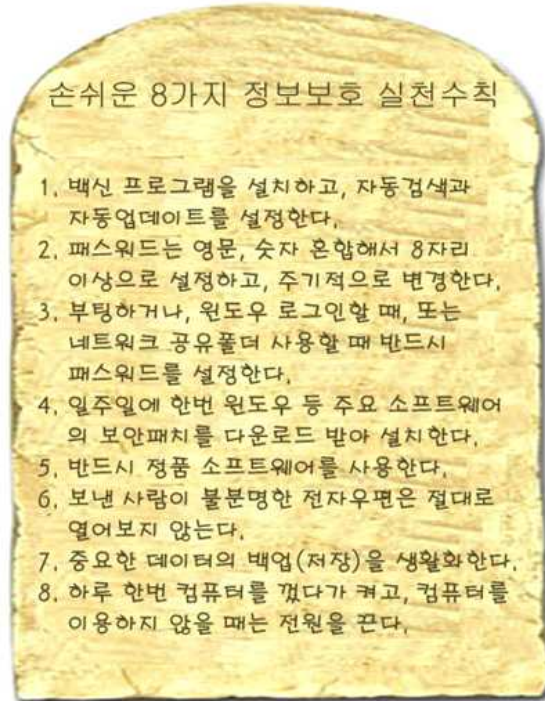 손쉬운 8가지 정보보호 실천수칙
1. 백신 프로그램을 설치하고, 자동검색과
자동업데이트를 설정한다.
2. 패스워드는 영문, 숫자 혼합해서 8자리
이상으로 설정하고, 주기적으로 변경한다.
3. 부팅하거나, 윈도우 로그인할 때, 또는
네트워크 공유폴더 사용할 때 반드시
패스워드를 설정한다.
4. 일주일에 한번 윈도우 등 주요 소프트웨어
의 보안패치를 다운로드 받아 설치한다.
5. 반드시 정품 소프트웨어를 사용한다.
6. 보낸 사람이 불분명한 전자우편은 절대로
열어보지 않는다.
7. 중요한 데이터의 백업(저장)을 생활화한다.
8. 하루 한번 컴퓨터를 껐다가 켜고, 컴퓨터를
이용하지 않을 때는 전원을 끈다.